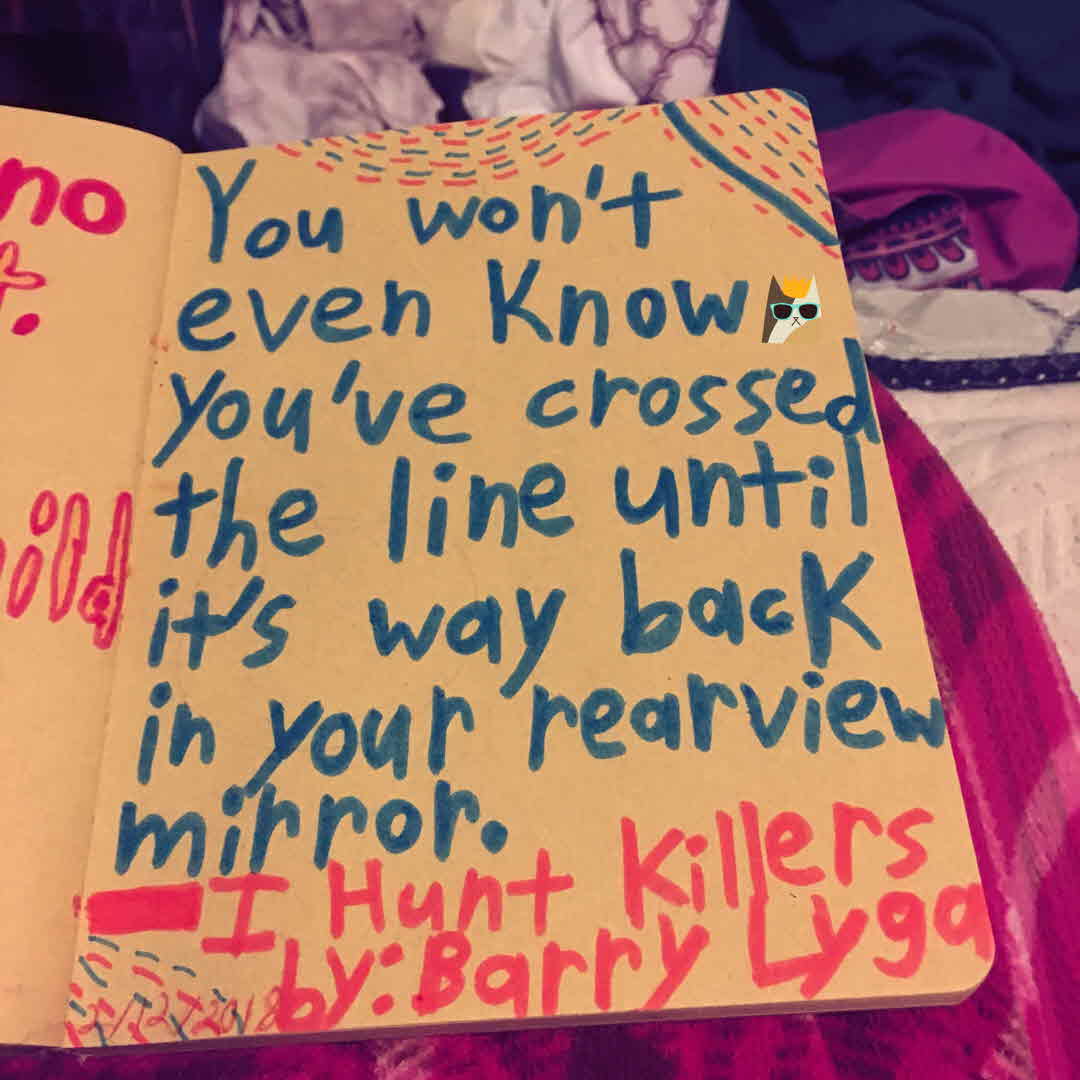 no
You won't
even Know
you've crossed
the line until
it's way back
in your rearview
mirror.
— I Hunt Killers
by: Barry Lyga